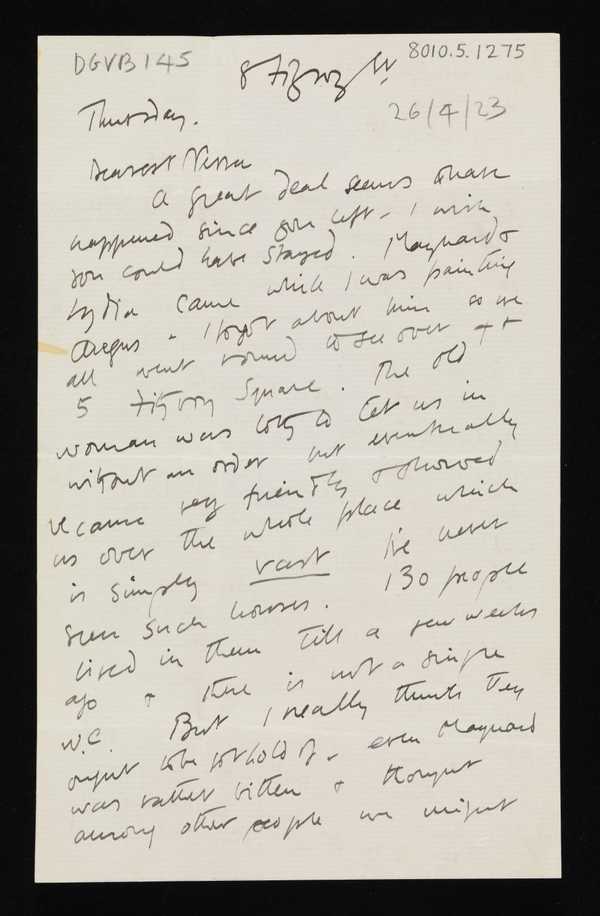 DGVB 145
8010.5.1275
8 Fitzroy St
26/4/23
Thursday.
Dearest Nessa
A great deal seems to have
happened since you left – I wish
you could have stayed. Maynard &
Lydia came while I was painting
Angus – I forgot about him so we
all went round to see over 4 &
5 Fitzroy Square. The old
woman was loth to let us in
without an order but eventually
became very friendly & showed
us over the whole place which
is simply vast I've never
seen such houses. 130 people
lived in them till a few weeks
ago & there is not a single
W.C. But I really think they
ought to be got hold of – even Maynard
was rather bitten & thought
among other people we might